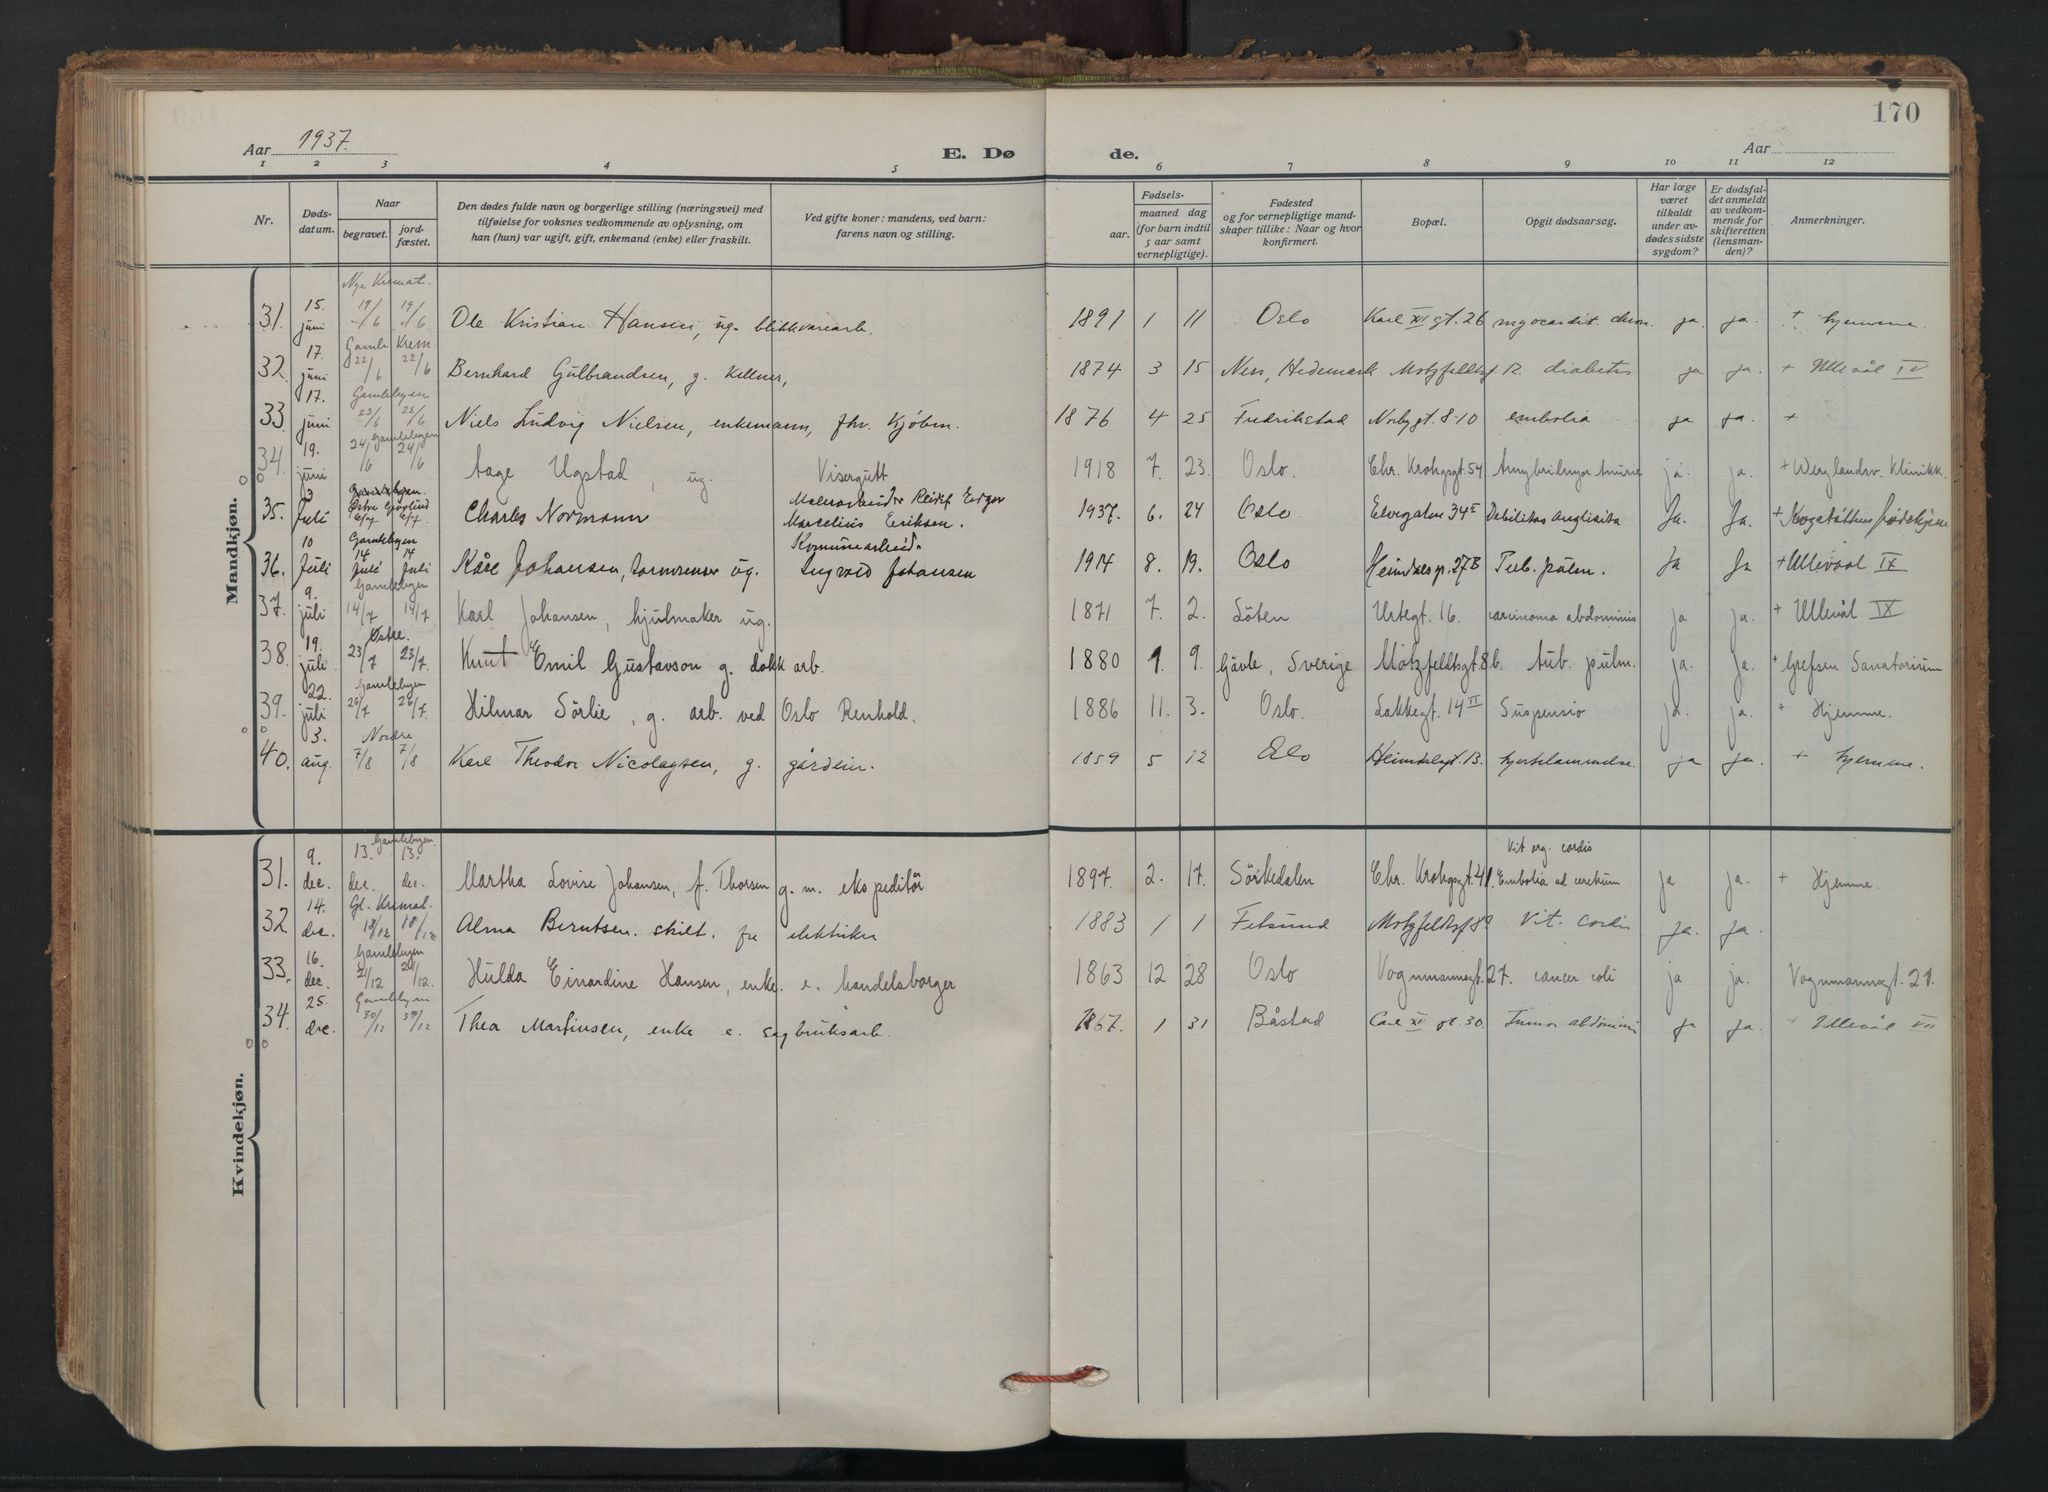 170
Aar 1937. E. Dø de. Aar
1 2 3 4 5 6 7 8 9 10 11 12
Nr. Døds-datum. Naar begravet. jord-fæstet. Den dødes fulde navn og borgerlige stilling (næringsvei) med tilføielse for voksnes vedkommende av oplysning, om han (hun) var ugift, gift, enkemand (enke) eller fraskilt. Ved gifte koner: mandens, ved barn: farens navn og stilling. Fødsels- aar. maaned dag (for barn indtil 5 aar samt vernepligtige). Fødested og for vernepligtige mand-skaper tillike: Naar og hvor konfirmert. Bopæl. Opgit dødsaarsag. Har læge været tilkaldt under av-dødes sidste sygdom? Er dødsfal-det anmeldt av vedkom-mende for skifteretten (lensman-den)? Anmerkninger.
Mandkjøn.
Nye Kremat.
31. 15. juni 19/6 19/6 Ole Kristian Hansen, ug. blikkvarearb. 1891 1 11 Oslo Karl XII gt. 26 myocardit. chron. ja. ja. + hjemme.
Gamle Krem.
32. 17. juni 22/6 22/6 Bernhard Gulbrandsen, g. kellner, 1874 3 15 Nes, Hedemark Motzfeldtsgt 12. diabetes ja ja. + Ullevål IV
Gamlebyen
33. 17. juni 23/6 Niels Ludvig Nielsen, enkemann, fhv. kjøbm. 1876 4 25 Fredrikstad Norbygt. 8-10 embolia ja ja. +
Gamlebyen
34. 19. juni 24/6 24/6 Aage Ugstad, ug. Visergutt 1918 7. 23. Oslo. Chr. Krohgsgt. 54 ja. ja. + Klinikk.
Gamlebyen.
Østre Gravlund
35. 3 Juli 6/7 6/7 Charles Normann Malerarbeider Reidef Edgar Marcelius Eriksen. 1937. 6. 24 Oslo Elvegaten 34 II Debilitas Ja. Ja. +
Gamlebyen
36. 10 Juli 14 Juli 14 Juli Kåre Johansen, ug. Kommunearbeid. Ingvald Johansen 1914 8. 19. Oslo 27B Tub. pulm. Ja Ja + Ullevaal IX
Gamlebyen
37. 9. juli 14/7 14/7 Karl Johansen, hjulmaker ug. 1871 7. 2. Löten Urtegt. 16. carcinoma abdominis ja ja. + Ullevål IX
Østre.
38. 19. juli 23/7 23/7 Knut Emil Gustavson g. dokk arb. 1880 9. 9. Gävle, Sverige Motzfeldtsgt 8 b. tub. pulm. ja. ja. + Grefsen Sanatorium
Gamlebyen
39. 22. juli 26/7 26/7. Hilmar Sörlie, g. arb. ved Oslo Renhold. 1886 11. 3. Oslo. Lakkegt. 14 II Suspensio ja. ja. + Hjemme.
Nordre
40. 3. aug. 7/8 7/8 Karl Theodor Nicolaysen, g. gårdeier. 1859 5 12 Oslo Heimdalsgt. 13. hjertelammelse. ja ja. + hjemme.
Kvindekjøn.
Gamlebyen
31. 9. dec. 13. dec. 13. dec. Martha Lovise Johansen, f. Thorsen g. m. ekspeditör 1897. 2. 17. Sörkedalen Chr. Krohgsgt. 41. Vit org. cordis Embolia ad cerebrum ja ja. + Hjemme.
Gl. Kremat.
32 14. dec. 18/12 18/12 Alma Berntsen. skilt. fra elektriker 1883 1 1 Fetsund Motzfeldtsgt 8 Vit. cordis ja. ja.
Gamlebyen
33. 16. dec. 21/12 21/12. Hulda Einardine Hansen, enke. e. handelsborger 1863 12 28 Oslo Vognmannsgt. 27. cancer coli ja ja. Vognmannsgt. 27.
Gamlebyen
34. 25. dec. 30/12 30/12 Thea Martinsen, enke e. sagbruksarb. 1867. 1 31 Båstad Carl XII gt. 30. Tumor abdominis ja ja. + Ullevål VII